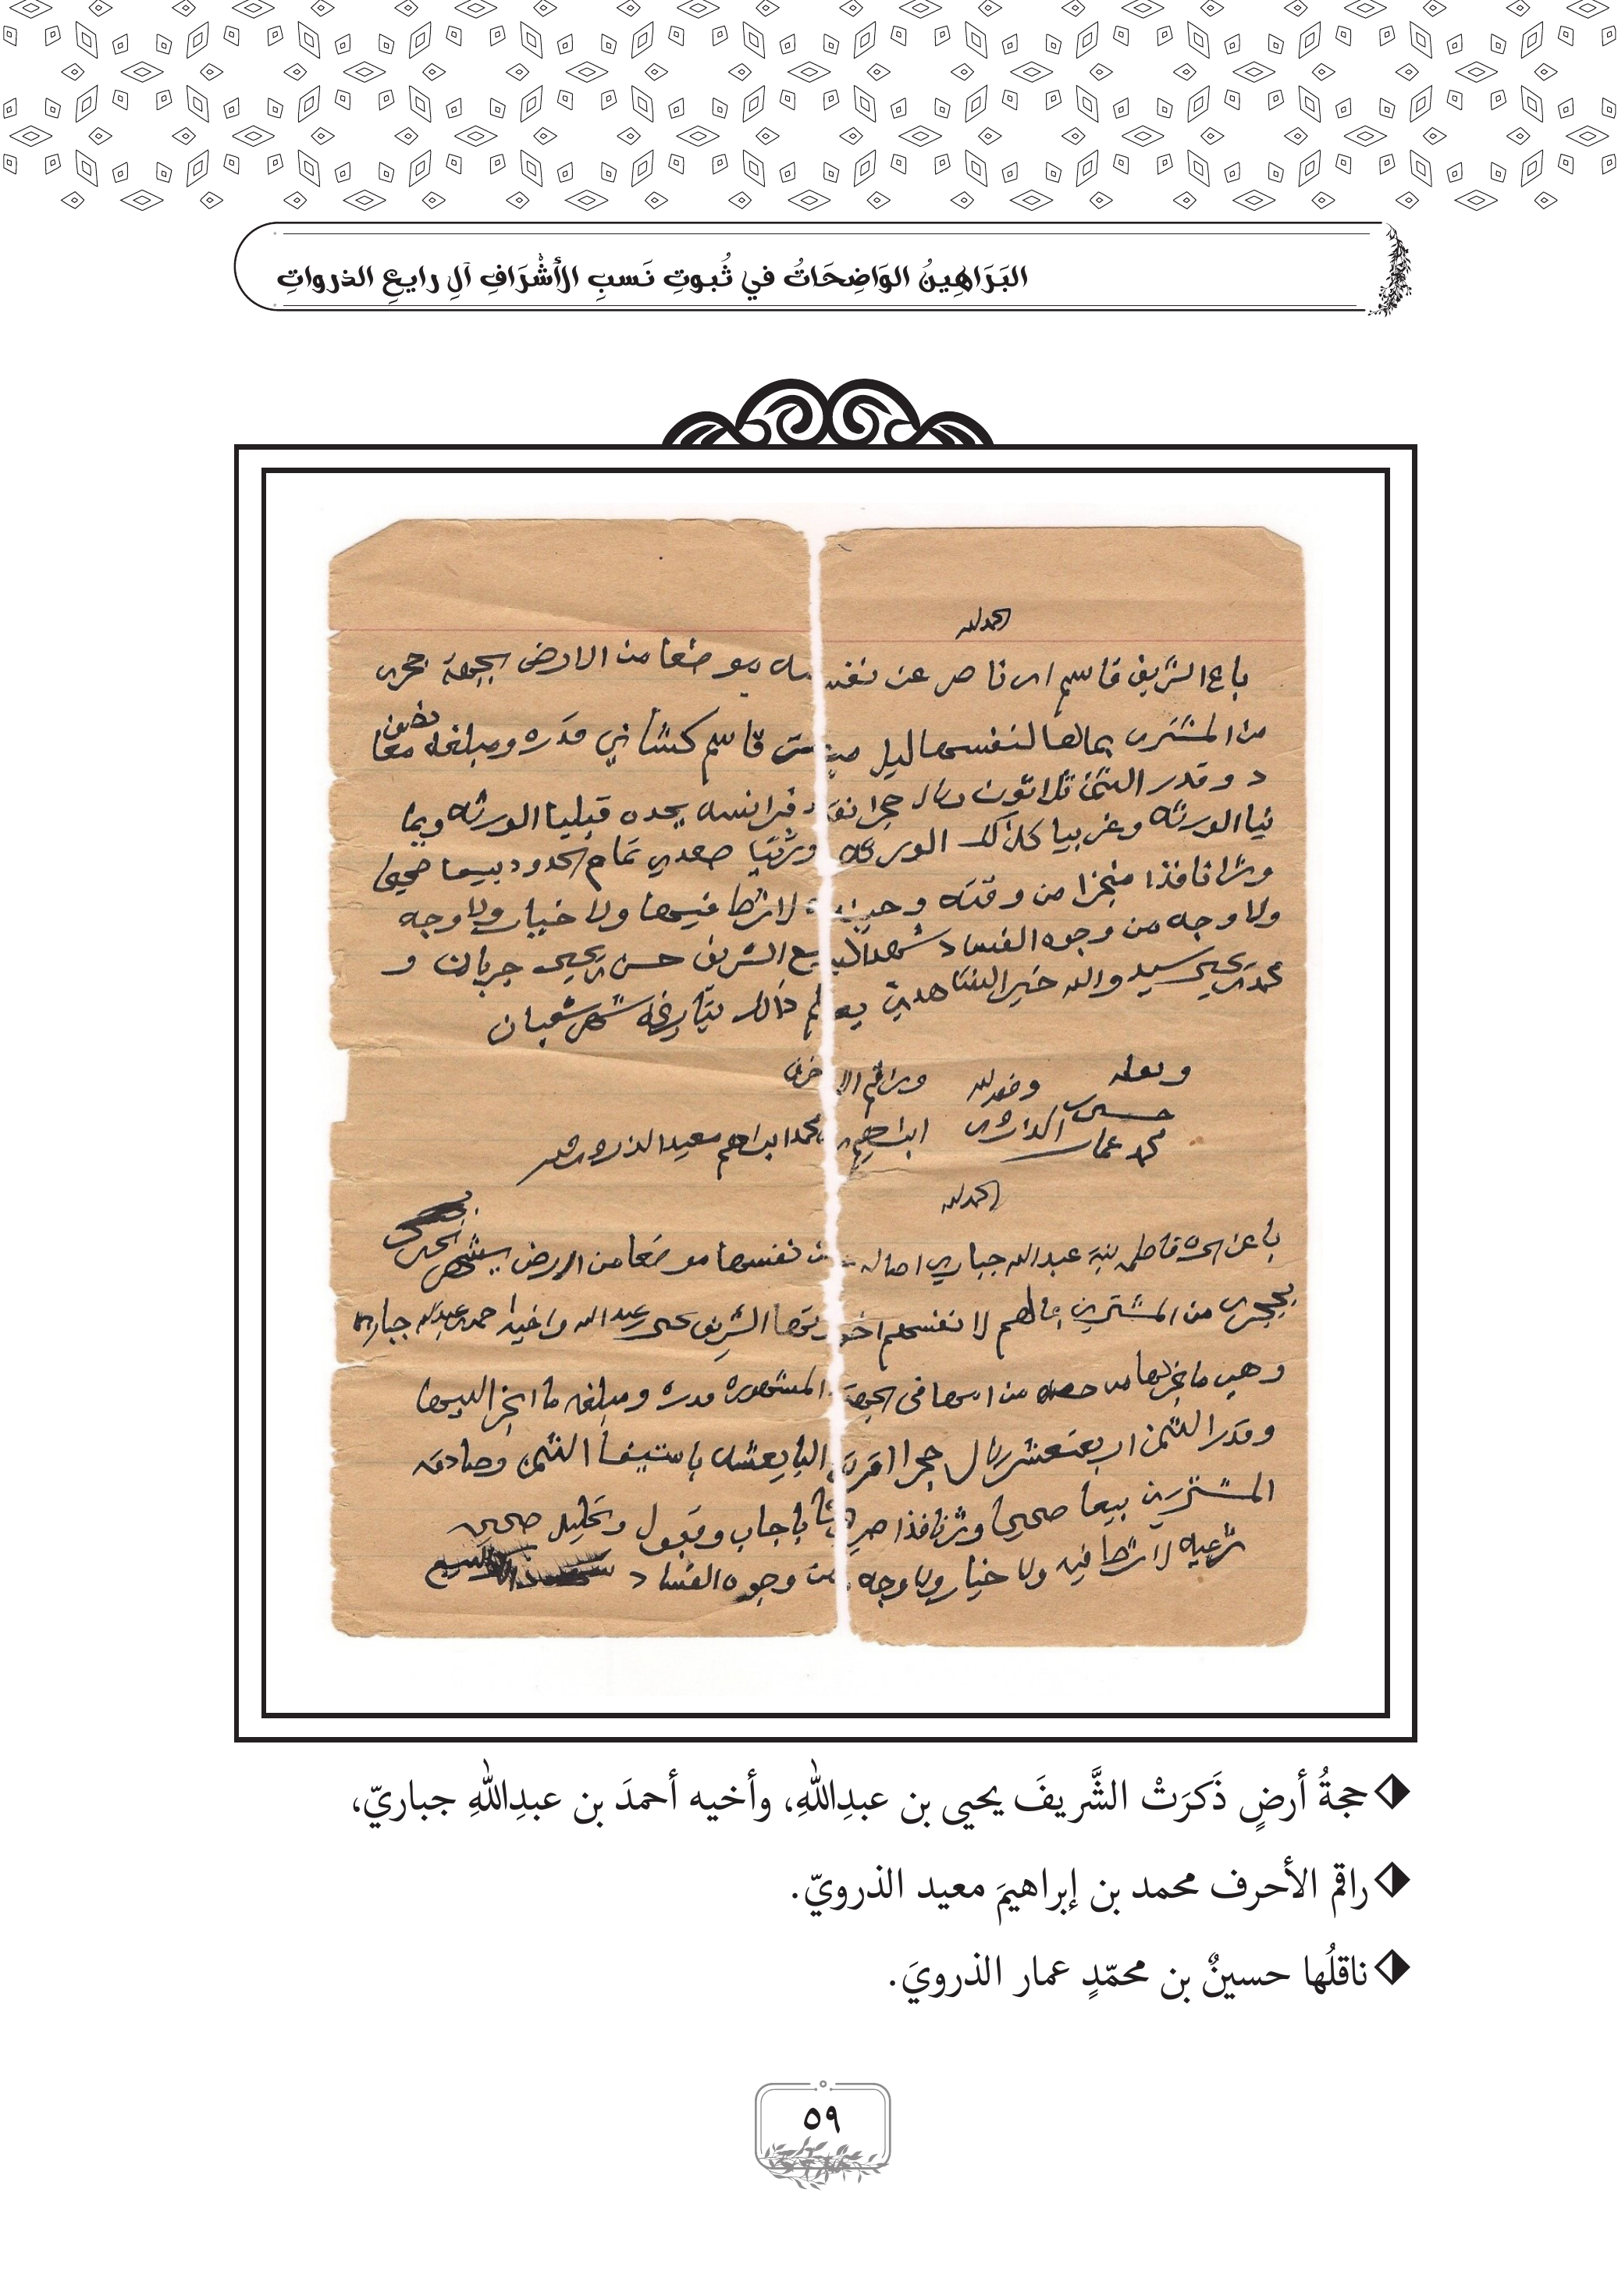 البَرَاهِينُ الوَاضِحَاتُ في ثُبوتِ نَسبِ الأَشْرَافِ آلِ رايعِ الذرواتِ
الحمد لله
باع الشريف قاسم ابن ناصر عن نفسه موضعا من الارض بجهة حجرى
من المشترى بمالها لنفسها ليل قاسم كشاني قدره ومبلغه معا
د وقدر الثمن ثلاثون ريال حجرا نقد فرانسه يحده قبليا الورثه ويما
نيا الورثه وغربيا كذلك الورثه وشرقيا صعدي تمام الحدود بيعا صحيحا
وشرا نافذا منجزا من وقته وحينه لا شرط فيها ولا خيار ولا وجه
ولا وجه من وجوه الفساد شهد البيع الشريف حسن يحيى جربان و
محمد يحيى سيد والله خير الشاهدين يعلم ذالك بتاريخه شهر شعبان
وراقم الاحرف
حسين محمد عمار الذروى
ابراهيم محمد ابراهيم معيد الذروى
الحمد لله
باعت الحره فاطمه بنة عبدالله جباري اصاله عن نفسها موضعا من الارض
بحجرى من المشترين بمالهم لا نفسهم اخوتها الشريف يحيى عبدالله واخيه احمد عبدالله جبارى
وهي ما نجز لها من حصه من امها في الجهة المشهوره قدره ومبلغه ما انجز اليها
وقدر الثمن اربعة عشر ريال حجرا اقرت البايعه باستيفا الثمن وصادقه
المشترين بيعا صحيحا وشرا نافذا صريحا باجاب وقبول وتخليه صحيحه
شرعيه لا شرط فيه ولا خيار ولا وجه من وجوه الفساد
حجةُ أرضٍ ذَكرَتْ الشَّريفَ يحيى بن عبدِاللهِ، وأخيه أحمدَ بن عبدِاللهِ جباريّ،
راقم الأحرف محمد بن إبراهيمَ معيد الذرويّ.
ناقلُها حسينٌ بن محمّدٍ عمار الذرويَ.
٥٩